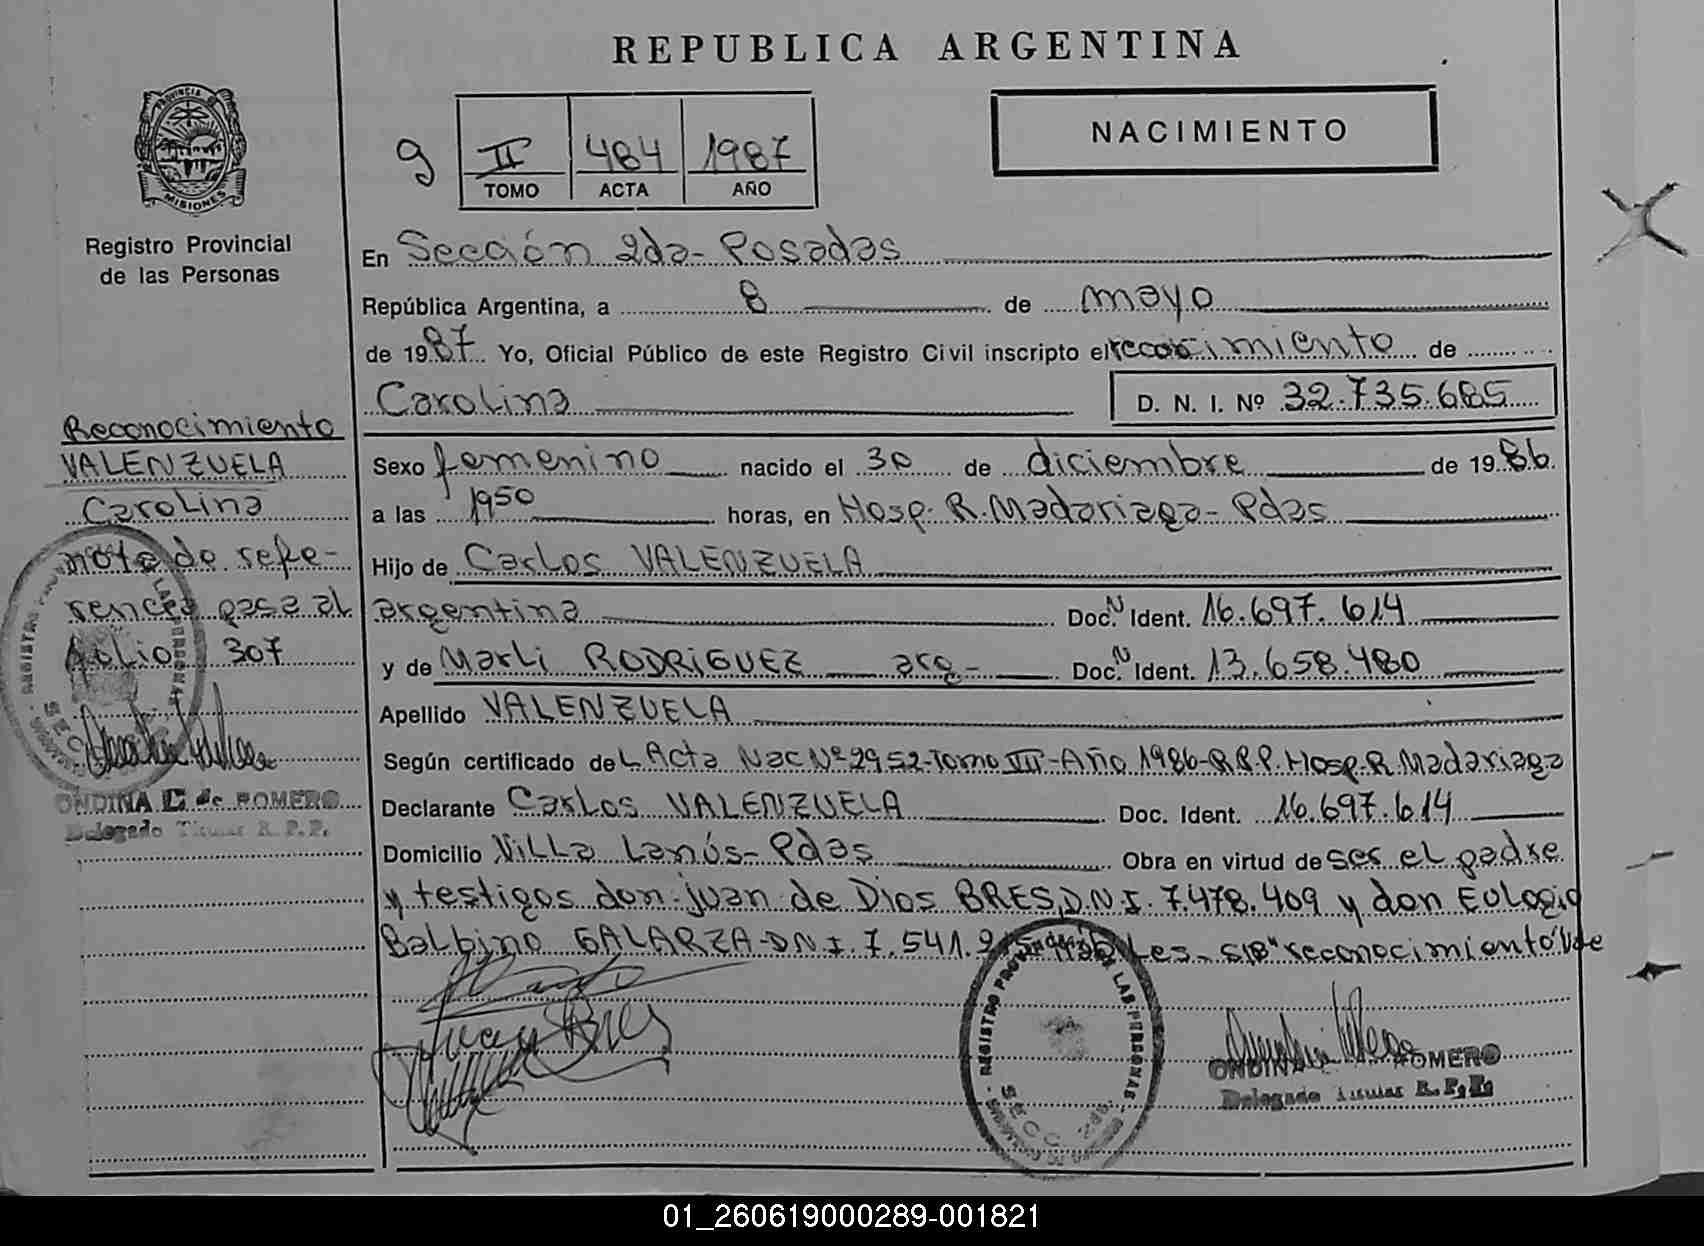 REPUBLICA ARGENTINA
PROVINCIA DE MISIONES
Registro Provincial
de las Personas
9 II 484 1987
TOMO ACTA AÑO
NACIMIENTO
En Sección 2da- Posadas
República Argentina, a 8 de mayo
de 1987 Yo, Oficial Público de este Registro Civil inscripto el reconocimiento de
Carolina D. N. I. Nº 32.735.685
Sexo femenino nacido el 30 de diciembre de 1986.
a las 1950 horas, en Hosp. R. Madariaga- Pdas
Hijo de Carlos VALENZUELA
argentina Doc.N Ident. 16.697.614
y de Marli RODRIGUEZ arg- Doc.N Ident. 13.658.480
Apellido VALENZUELA
Según certificado del Acta Nac Nº 2952-Tomo III-Año 1986-R.P.P. Hosp. R. Madariaga
Declarante Carlos VALENZUELA Doc. Ident. 16.697.614
Domicilio Villa Lanús- Pdas Obra en virtud de ser el padre
y testigos don juan de Dios BRES, D.N.I. 7.478.409 y don Eulogio
Balbino GALARZA-DNI. 7.541. Hábiles- s/b "reconocimiento" Vde
Juan Bres
Reconocimiento
VALENZUELA
Carolina
nota de refe-
rencia pasa al
folio 307
ONDINA C de ROMERO
Delegado Titular R. P. P.
REGISTRO PROV. DE LAS PERSONAS
SECC. 2da
ONDINA ROMERO
Delegado Titular R. P. P.
01_260619000289-001821